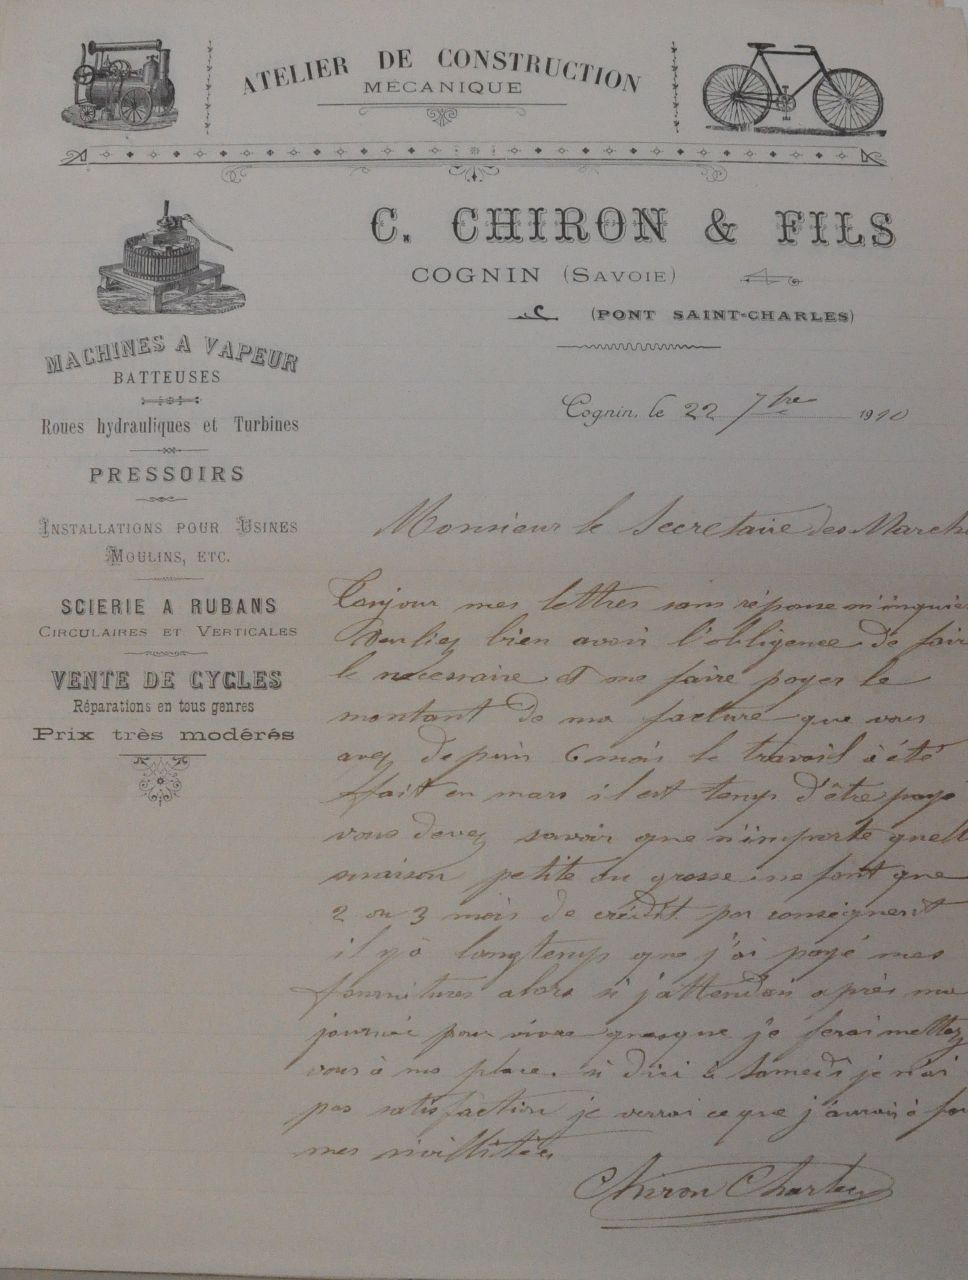 ATELIER DE CONSTRUCTION
MÉCANIQUE
C. CHIRON & FILS
COGNIN (SAVOIE)
(PONT SAINT-CHARLES)
MACHINES A VAPEUR
BATTEUSES
Roues hydrauliques et Turbines
PRESSOIRS
INSTALLATIONS POUR USINES
MOULINS, ETC.
SCIERIE A RUBANS
CIRCULAIRES ET VERTICALES
VENTE DE CYCLES
Réparations en tous genres
Prix très modérés
Cognin, le 22 7bre 1910
Monsieur le Secretaire des March
Tonjour mes lettres sans réponse m'inquie
Veuliez bien avoir l'obligence de fair
le nécessaire et me faire payer le
montant de ma facture que vous
avez depuis 6 mois le travail à été
fait en mars il est temp d'être paye
vous devez savoir que n'importe quell
maison petite ou grosse ne font que
2 ou 3 mois de crédit par conséignent
il y à longtemp que j'ai payé mes
fournitures alors si j'attendais après ma
journée pour vivre quesque je ferai mettez
vous à ma place. si d'ici à Samedi je n'ai
pas satisfaction je verrai ce que j'aurai à fai
mes sivillitées
Chiron Charles